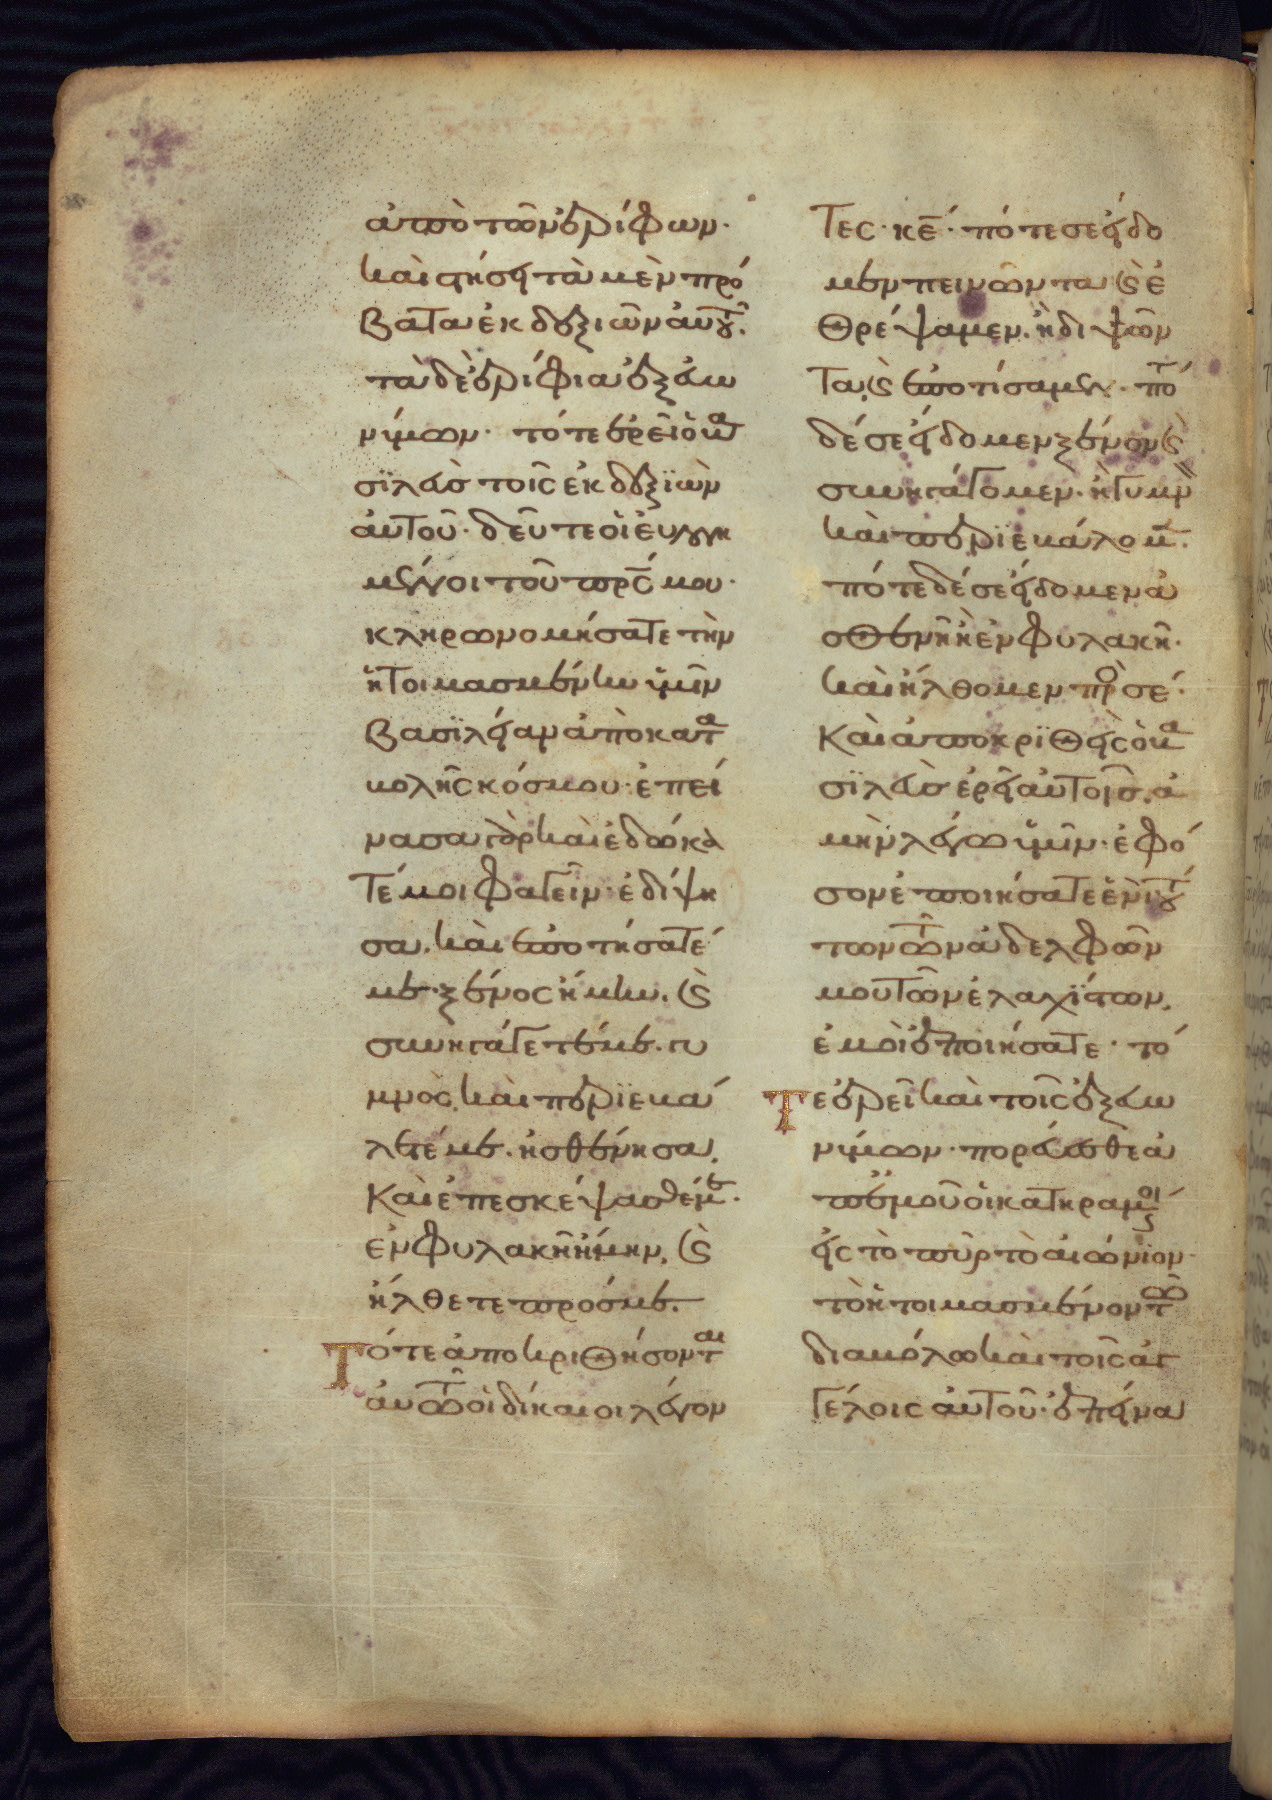 ἀπὸ τῶν ἐρίφων·
καὶ στήσει τὰ μὲν πρό
βατα ἐκ δεξιῶν αὐτοῦ·
τὰ δὲ ἐρίφια ἐξ εὐω
νύμων· τότε ἐρεῖ ὁ βα
σϊλεὺσ τοῖς ἐκ δεξϊὼν
αὐτοῦ· δεῦτε οἱ εὐλογη
μένοι τοῦ πρς μου·
κληρωνομήσατε τὴν
ἡτοιμασμένην ὑμῖν
βασϊλείαν ἀπὸ κατα
βολῆς κόσμου· ἐπεί
νασα γὰρ καὶ ἐδώκα
τέ μοι φαγεῖν· ἐδίψη
σα, καὶ ἐποτήσατέ
με· ξένος ἤμην, καὶ
συνηγάγετέ με· γυ
μνὸς, καὶ περϊεβά
λετέ με· ἠσθένησα,
καὶ ἐπεσκέψασθέ με·
ἐν φυλακῆ ἤμην, καὶ
ἤλθετε πρόσ με.
Τότε ἀποκριθήσονται
αὐτῶ οἱ δίκαιοι λέγον
τες· κε· πότε σε εἴδο
μεν πεινῶντα καὶ ἐ
θρέψαμεν· ἢ διψῶν
τα, καὶ ἐποτίσαμεν· πότε
δέ σε εἴδομεν ξένον καὶ
συνηγάγομεν· ἢ γυμνὸν
καὶ περϊεβάλομεν·
πότε δέ σε εἴδομεν ἀ
σθενῆ ἢ ἐν φυλακῆ·
καὶ ἤλθομεν πρός σέ·
καὶ ἀποκρϊθεὶς ὁ βα
σϊλεὺσ ἐρεῖ αὐτοῖσ· ἀ
μὴν λέγω ὑμῖν· ἐφό
σον ἐποιήσατε ἑνὶ τού
των τῶν ἀδελφῶν
μου τῶν ἐλαχίστων,
ἐμοὶ ἐποιήσατε· τό
Τε ἐρεῖ καὶ τοῖς ἐξ εὐω
νύμων· πορεύεσθε ἀ
π ἐμοῦ οἱ κατηραμένοι
εἰς τὸ πῦρ τὸ αἰώνϊον·
τὸ ἡτοιμασμένον τῶ
διαβόλω καὶ τοῖς ἀγ
γέλοις αὐτοῦ· ἐπείνα